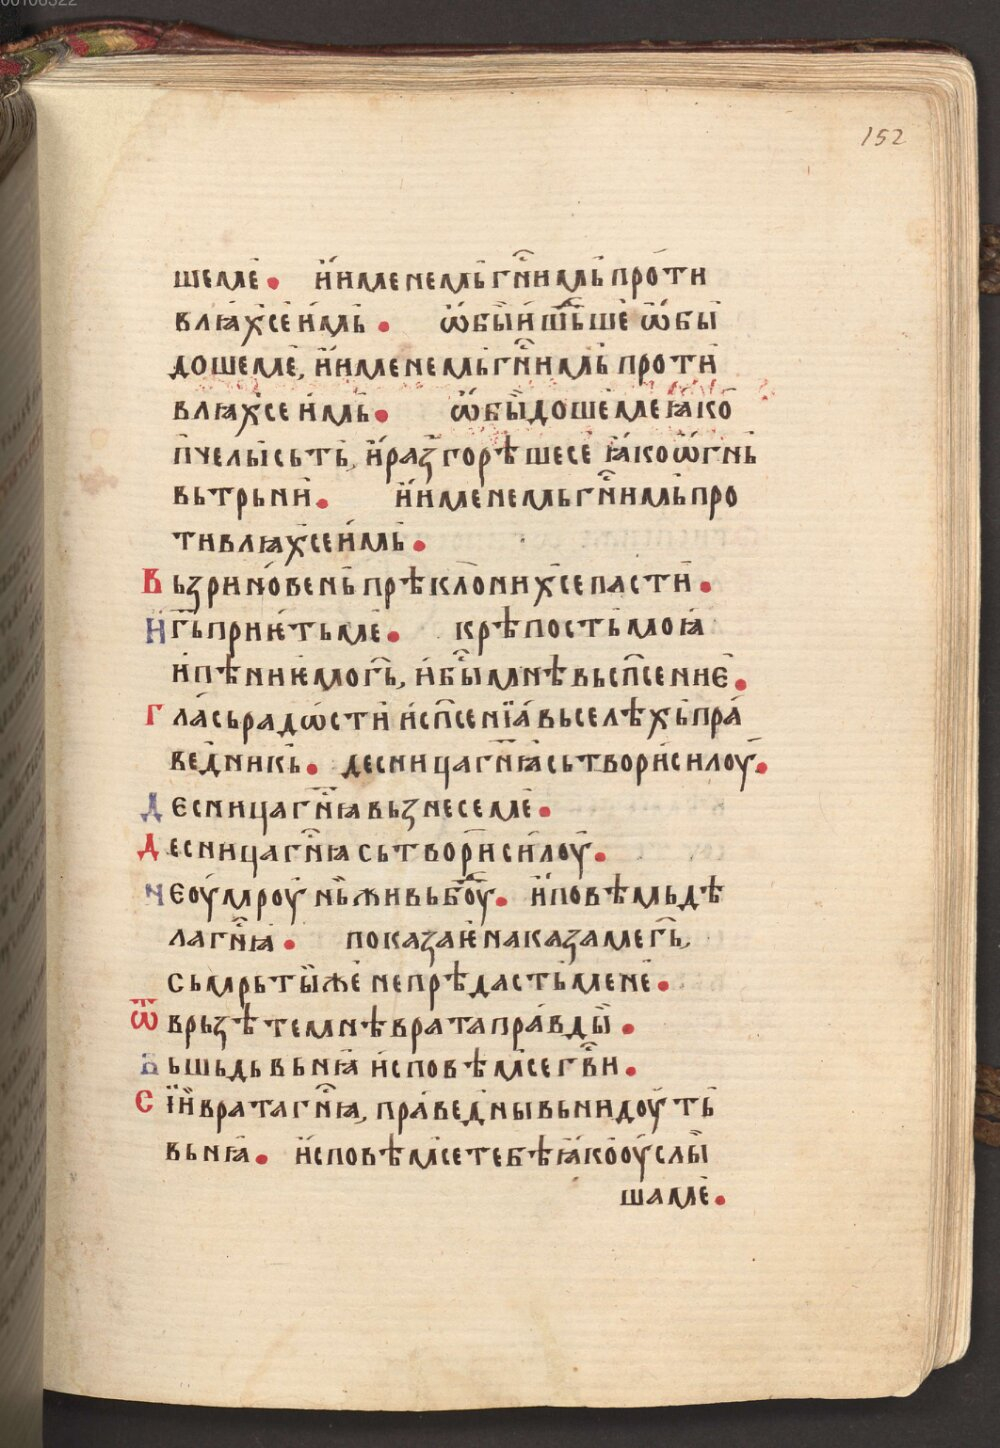 00106322
152
шеме. и именемь гн҃имь проти
влꙗхсе имь. ѡбыишьше ѡбы
дошеме, и именемь гн҃имь проти
влꙗхсе имь. ѡбыдошеме ꙗко
пчелы сьть, и разгорѣшесе ꙗко ѡгнь
вь трьни. и именемь гн҃имь про
тивлꙗхсе имь.
Вьзриновень прѣклонихсе пасти.
И гь҃ приѥть ме. крѣпость моꙗ
и пѣниѥ мо гь҃, и бы мнѣ вь сп҃сение.
Глась радѡсти и сп҃сениꙗ вь селѣхь пра
ведникь. десница гн҃ꙗ сьтвори силоу.
Десница гн҃ꙗ вьзнесе ме.
Десница гн҃ꙗ сьтвори силоу.
Не оумроу нь живь боуу. и повѣмь дѣ
ла гн҃ꙗ. показаѥ наказа ме гь҃,
сьмрьти же не прѣдасть мене.
Ѿврьзѣте мнѣ врата правды.
Вьшьдь вь нꙗ исповѣмсе гв҃и.
Сїи врата гн҃ꙗ, праведны вьнидоуть
вь нꙗ. исповѣмсе тебѣ ꙗко оуслы
ша ме.